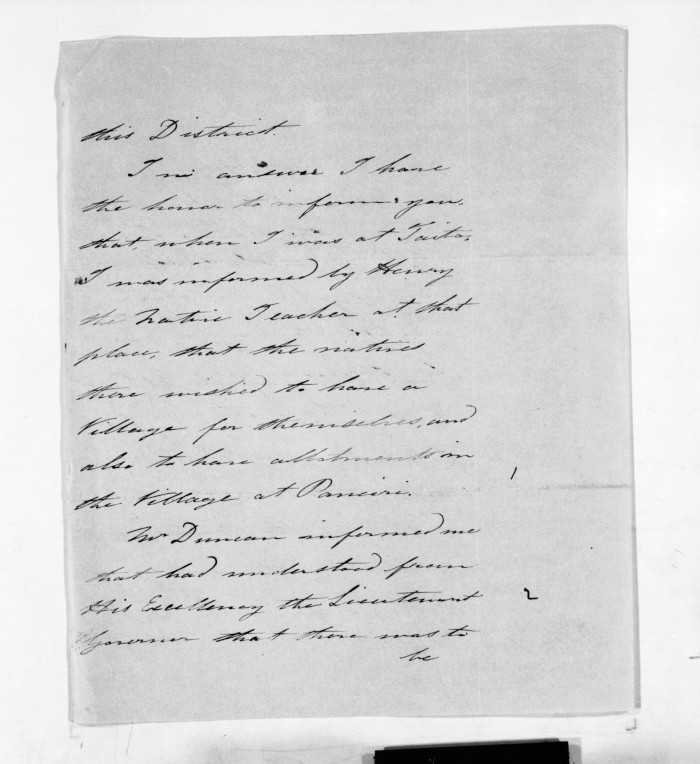 this District.
In answer I have
the honor to inform you,
that, when I was at Taita,
I was informed by Henry
the Native Teacher at that
place, that the natives
there wished to have a
Village for themselves, and
also to have allotments in
the Village at Paneiri.
1
Mr Duncan informed me
that had understood from
His Excellency the Lieutenant
2
Governor that there was to
be